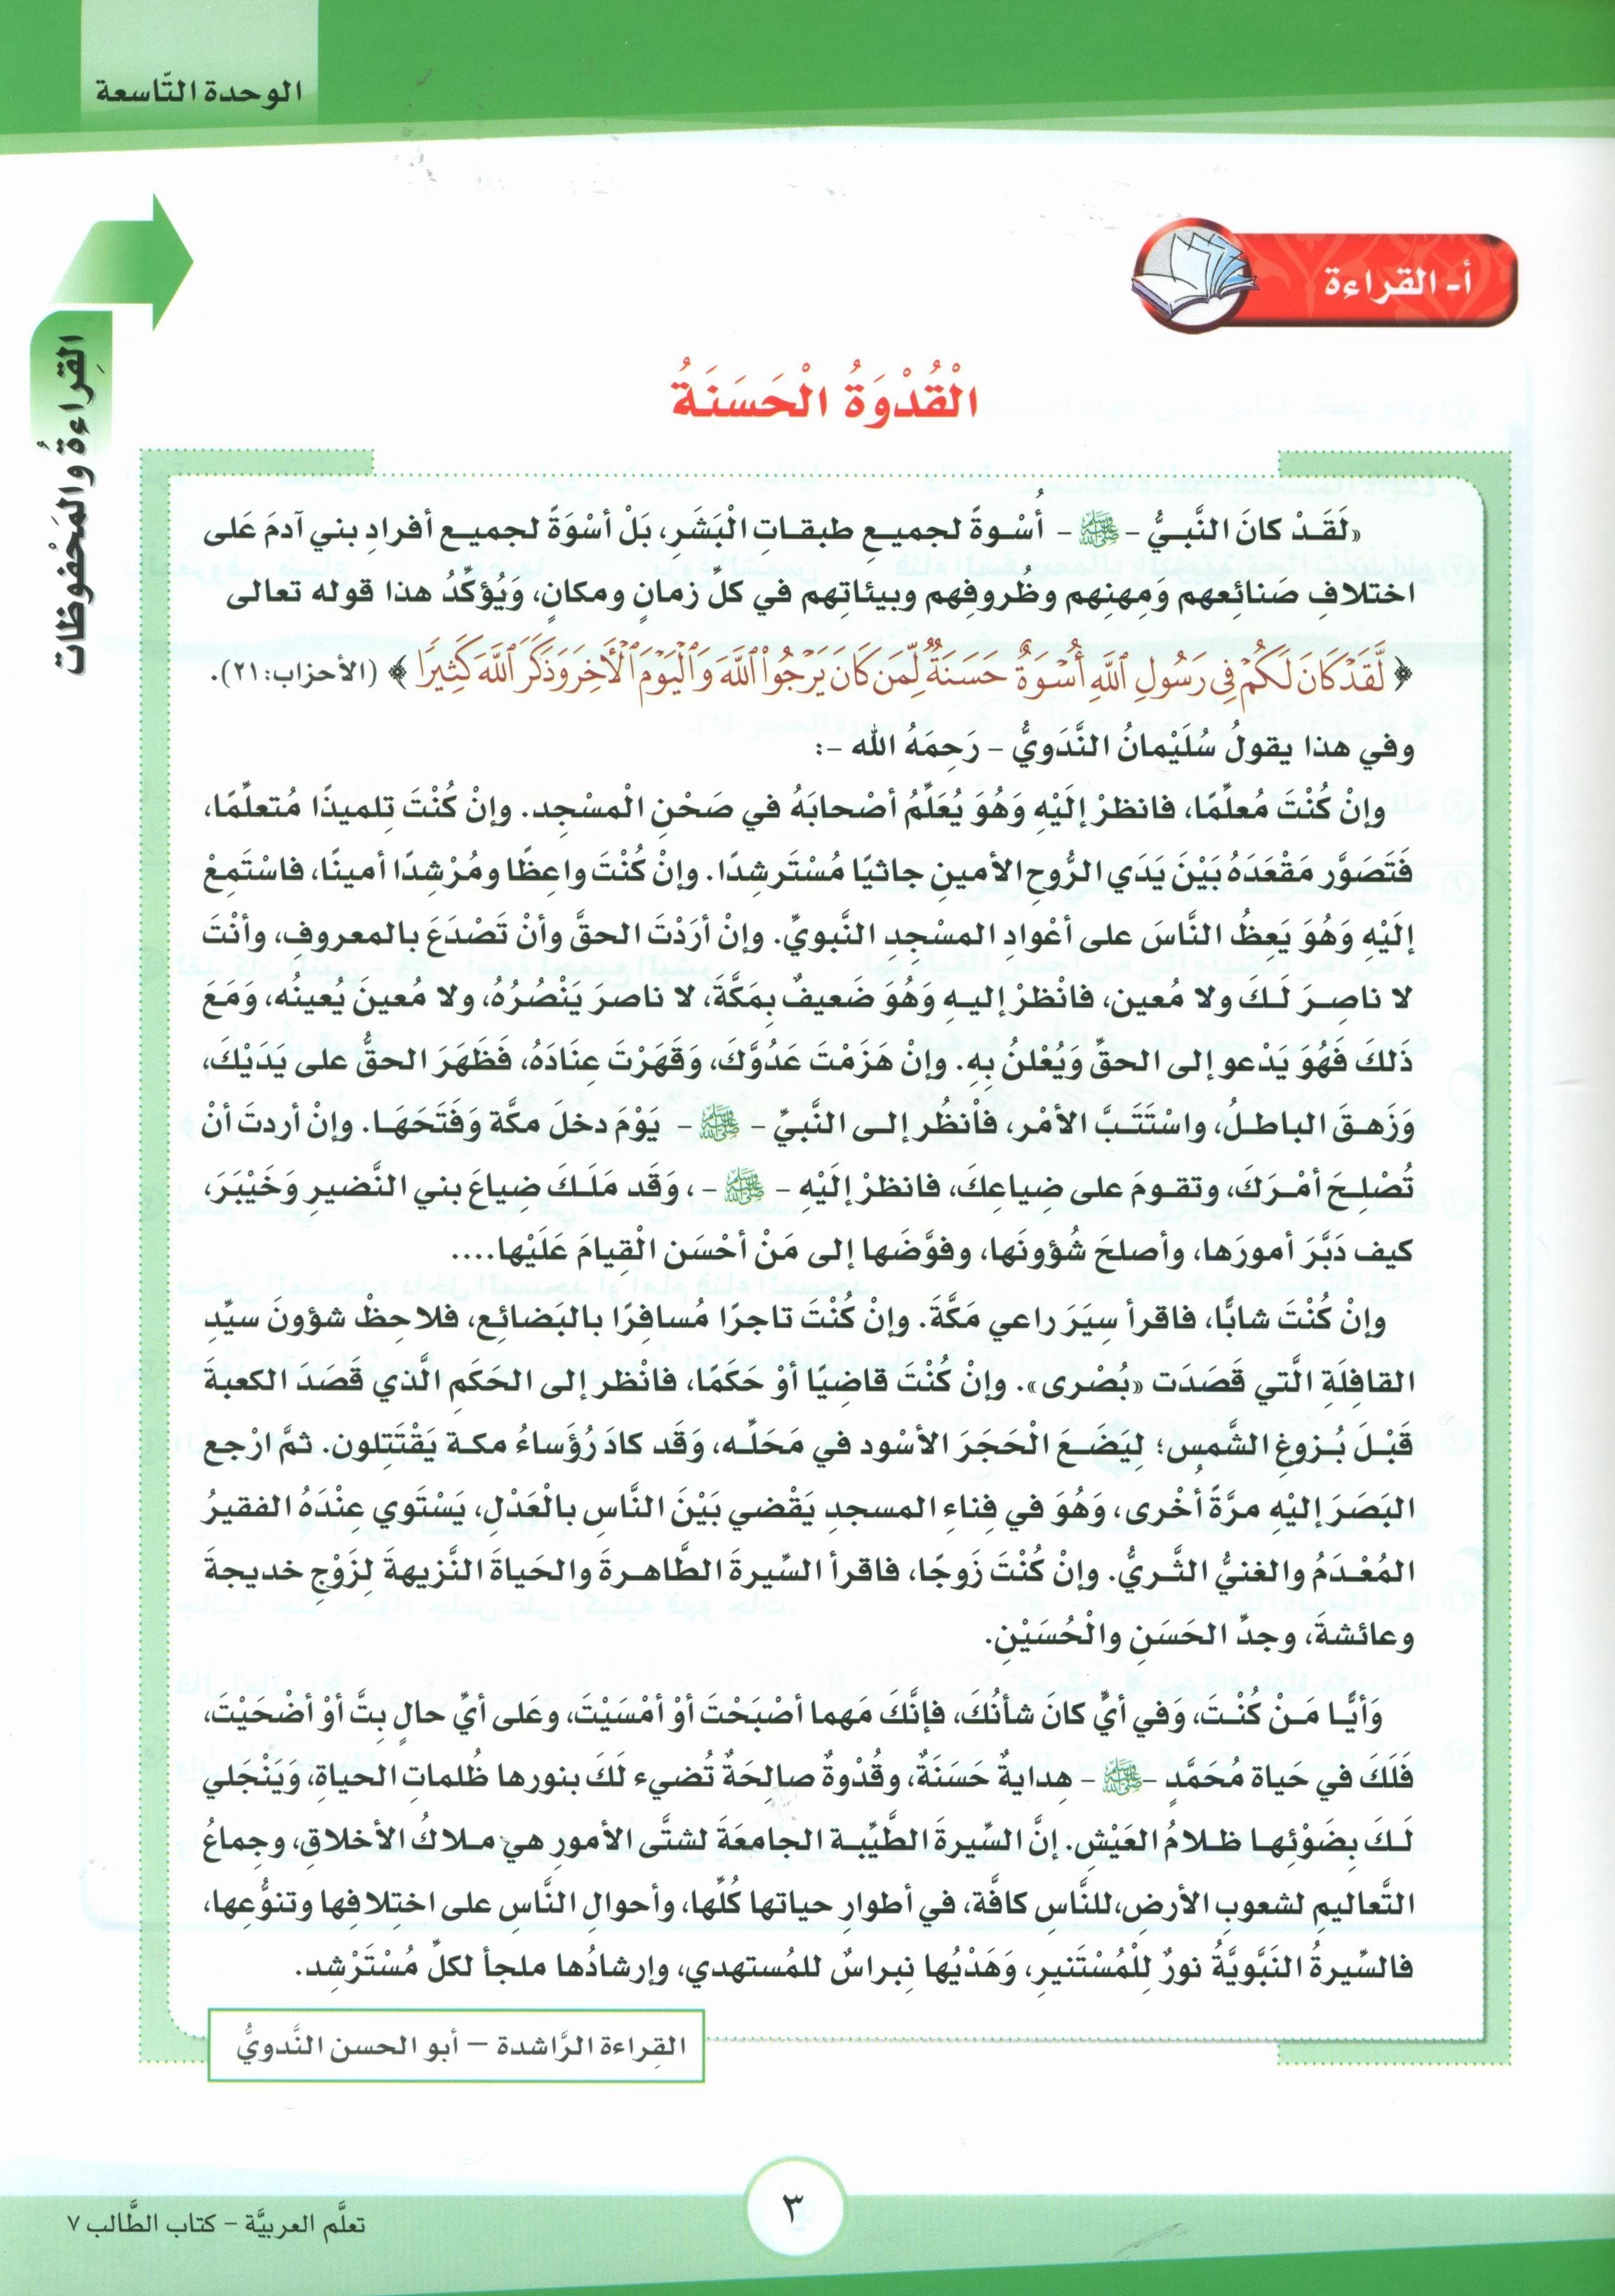 الوحدة التّاسعة
أ- القراءة
القِراءةُ والمَحْفوظات
الْقُدْوَةُ الْحَسَنَةُ
«لَقَدْ كانَ النَّبيُّ - ﷺ - أُسْوةً لجميعِ طبقاتِ الْبَشَرِ، بَلْ أسْوَةً لجميعِ أفرادِ بني آدمَ عَلى
اختلافِ صَنائِعهم ومِهنِهم وظُروفِهم وبيئاتِهم في كلِّ زمانٍ ومكانٍ، وَيُؤكِّدُ هذا قوله تعالى
﴿ لَّقَدْ كَانَ لَكُمْ فِى رَسُولِ ٱللَّهِ أُسْوَةٌ حَسَنَةٌ لِّمَن كَانَ يَرْجُوا۟ ٱللَّهَ وَٱلْيَوْمَ ٱلْأَخِرَ وَذَكَرَ ٱللَّهَ كَثِيرًا ﴾ (الأحزاب: ٢١).
وفي هذا يقولُ سُلَيْمانُ النَّدَويُّ - رَحِمَهُ الله -:
وإنْ كُنْتَ مُعلِّمًا، فانظرْ إلَيْهِ وَهُوَ يُعَلِّمُ أصْحابَهُ في صَحْنِ الْمسْجِد. وإنْ كُنْتَ تلميذًا مُتعلِّمًا،
فَتَصَوَّر مَقْعَدَهُ بَيْنَ يَدَي الرُّوحِ الأمينِ جاثيًا مُسْتَرشِدًا. وإنْ كُنْتَ واعِظًا ومُرْشِدًا أمينًا، فاسْتَمِعْ
إلَيْهِ وَهُوَ يَعِظُ النَّاسَ على أعْوادِ المسْجِدِ النَّبويِّ. وإنْ أرَدْتَ الحقَّ وأنْ تَصْدَعَ بالمعروف، وأنْتَ
لا ناصِرَ لكَ ولا مُعين، فانْظرْ إليهِ وَهُوَ ضَعيفٌ بِمَكَّةَ، لا ناصرَ يَنْصُرُهُ، ولا مُعينَ يُعينُه، وَمَعَ
ذَلكَ فَهُوَ يَدْعو إلى الحقِّ وَيُعْلنُ بِهِ. وإنْ هَزَمْتَ عَدُوَّكَ، وَقَهَرْتَ عِنَادَهُ، فَظَهَرَ الحقُّ على يَدَيْكَ،
وَزَهقَ الباطلُ، واسْتَتَبَّ الأمْر، فأنظُر إلى النَّبيِّ - ﷺ - يَوْمَ دخلَ مكَّة وَفَتَحَهَا. وإنْ أردتَ أنْ
تُصْلِحَ أمْرَكَ، وتقومَ على ضِياعِكَ، فانظرْ إلَيْهِ - ﷺ -، وَقَد مَلَكَ ضِياعَ بني النَّضيرِ وَخَيْبَرَ،
كيف دَبَّرَ أمورَها، وأصلحَ شُؤونَها، وفوَّضَها إلى مَنْ أحْسَن الْقِيامَ عَلَيْها....
وإنْ كُنْتَ شابًّا، فاقرأ سِيَرَ راعي مَكَّةَ. وإنْ كُنْتَ تاجرًا مُسافِرًا بالبَضائِع، فلاحِظْ شؤونَ سيِّدِ
القافِلَةِ الَّتي قَصَدَت «بُصْرى». وإنْ كُنْتَ قاضِيًا أوْ حَكَمًا، فانْظر إلى الحَكَمِ الَّذي قَصَدَ الكعبةَ
قَبْلَ بُزوغِ الشَّمس؛ لِيَضَعَ الْحَجَرَ الأسْود في مَحَلِّه، وَقَد كادَ رُؤَساءُ مكة يَقْتَتِلون. ثمَّ ارْجع
البَصَرَ إليْهِ مرَّةً أُخْرى، وَهُوَ في فِناءِ المسجدِ يَقْضي بَيْنَ النَّاسِ بالْعَدْلِ، يَسْتَوي عِنْدَهُ الفقيرُ
المُعْدَمُ والغنيُّ الثَّريُّ. وإنْ كُنْتَ زَوجًا، فاقرأ السِّيرةَ الطَّاهرةَ والحَياةَ النَّزيهةَ لِزَوْجِ خديجةَ
وعائشةَ، وجدِّ الحَسَنِ والْحُسَيْنِ.
وَأيًّا مَنْ كُنْتَ، وَفي أيٍّ كانَ شأنُكَ، فإنَّكَ مَهما أصْبَحْتَ أوْ أمْسَيْتَ، وعَلى أيِّ حالٍ بِتَّ أوْ أضْحَيْتَ،
فَلَكَ في حَياة مُحَمَّدٍ - ﷺ - هِدايةٌ حَسَنَةٌ، وقُدْوةٌ صالِحَةٌ تُضيء لَكَ بنورها ظُلماتِ الحياةِ، وَيَنْجَلي
لَكَ بِضَوْئِها ظلامُ العَيْشِ. إنَّ السِّيرةَ الطَّيِّبة الجامعَةَ لشتَّى الأمورِ هي ملاكُ الأخلاقِ، وجماعُ
التَّعاليمِ لشعوبِ الأرضِ،للنَّاسِ كافَّة، في أطوارِ حياتها كُلِّها، وأحوالِ النَّاسِ على اختِلافِها وتنوُّعِها،
فالسِّيرةُ النَّبَّويَّةُ نورٌ لِلْمُسْتَنيرِ، وَهَدْيُها نِبراسٌ للمُستهدي، وإرشادُها ملجأ لكلِّ مُسْتَرْشِد.
القِراءة الرَّاشدة – أبو الحسن النَّدويُّ
٣
تعلَّم العربيَّة - كتاب الطَّالب ٧